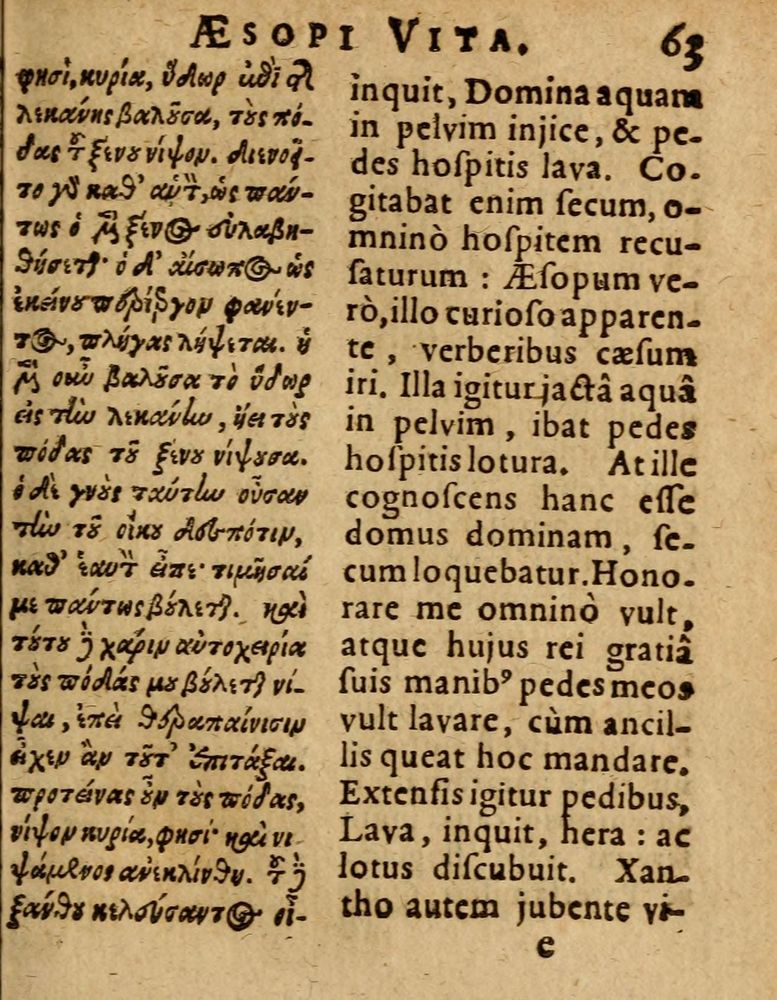 ÆSOPI VITA. 63
φησὶ, κυρία, ὕδωρ κατὰ τῆς
λεκάνης βαλοῦσα, τοὺς πό-
δας τοῦ ξένου νίψον. διενοεῖ-
το γὰρ καθ' αὑτὸν, ὡς πάν-
τως ὁ μὲν ξένος συλαβη-
θήσεται· ὁ δ' αἴσωπος ὡς
ἐκείνου περιέργου φανέν-
τος, πληγὰς λήψεται. ἡ
μὲν οὖν βαλοῦσα τὸ ὕδωρ
εἰς τὴν λεκάνην, ᾔει τοὺς
πόδας τοῦ ξένου νίψουσα.
ὁ δὲ γνοὺς ταύτην οὖσαν
τὴν τοῦ οἴκου δεσπότιν,
καθ' ἑαυτὸν εἶπε· τιμῆσαί
με πάντως βούλεται. καὶ
τούτου δὲ χάριν αὐτοχειρία
τοὺς πόδάς μου βούλεται νί-
ψαι, ἐπεὶ θεραπαίνισιν
εἶχεν ἂν τοῦτ' ἐπιτάξαι.
προτείνας οὖν τοὺς πόδας,
νίψον κυρία, φησί· καὶ νι
ψάμενος ἀνεκλίνθη. τοῦ δὲ
ξάνθου κελεύσαντος οἰ-
inquit, Domina aquam
in pelvim injice, & pe-
des hoſpitis lava. Co-
gitabat enim ſecum, o-
mninò hoſpitem recu-
ſaturum : Æſopum ve-
rò, illo curioſo apparen-
te , verberibus cæſum
iri. Illa igitur jactâ aquâ
in pelvim , ibat pedes
hoſpitis lotura. At ille
cognoſcens hanc eſſe
domus dominam , ſe-
cum loquebatur. Hono-
rare me omninò vult,
atque hujus rei gratiâ
ſuis manibꝰ pedes meos
vult lavare, cùm ancil-
lis queat hoc mandare.
Extenſis igitur pedibus,
Lava, inquit, hera : ac
lotus diſcubuit. Xan-
tho autem jubente vi-
e